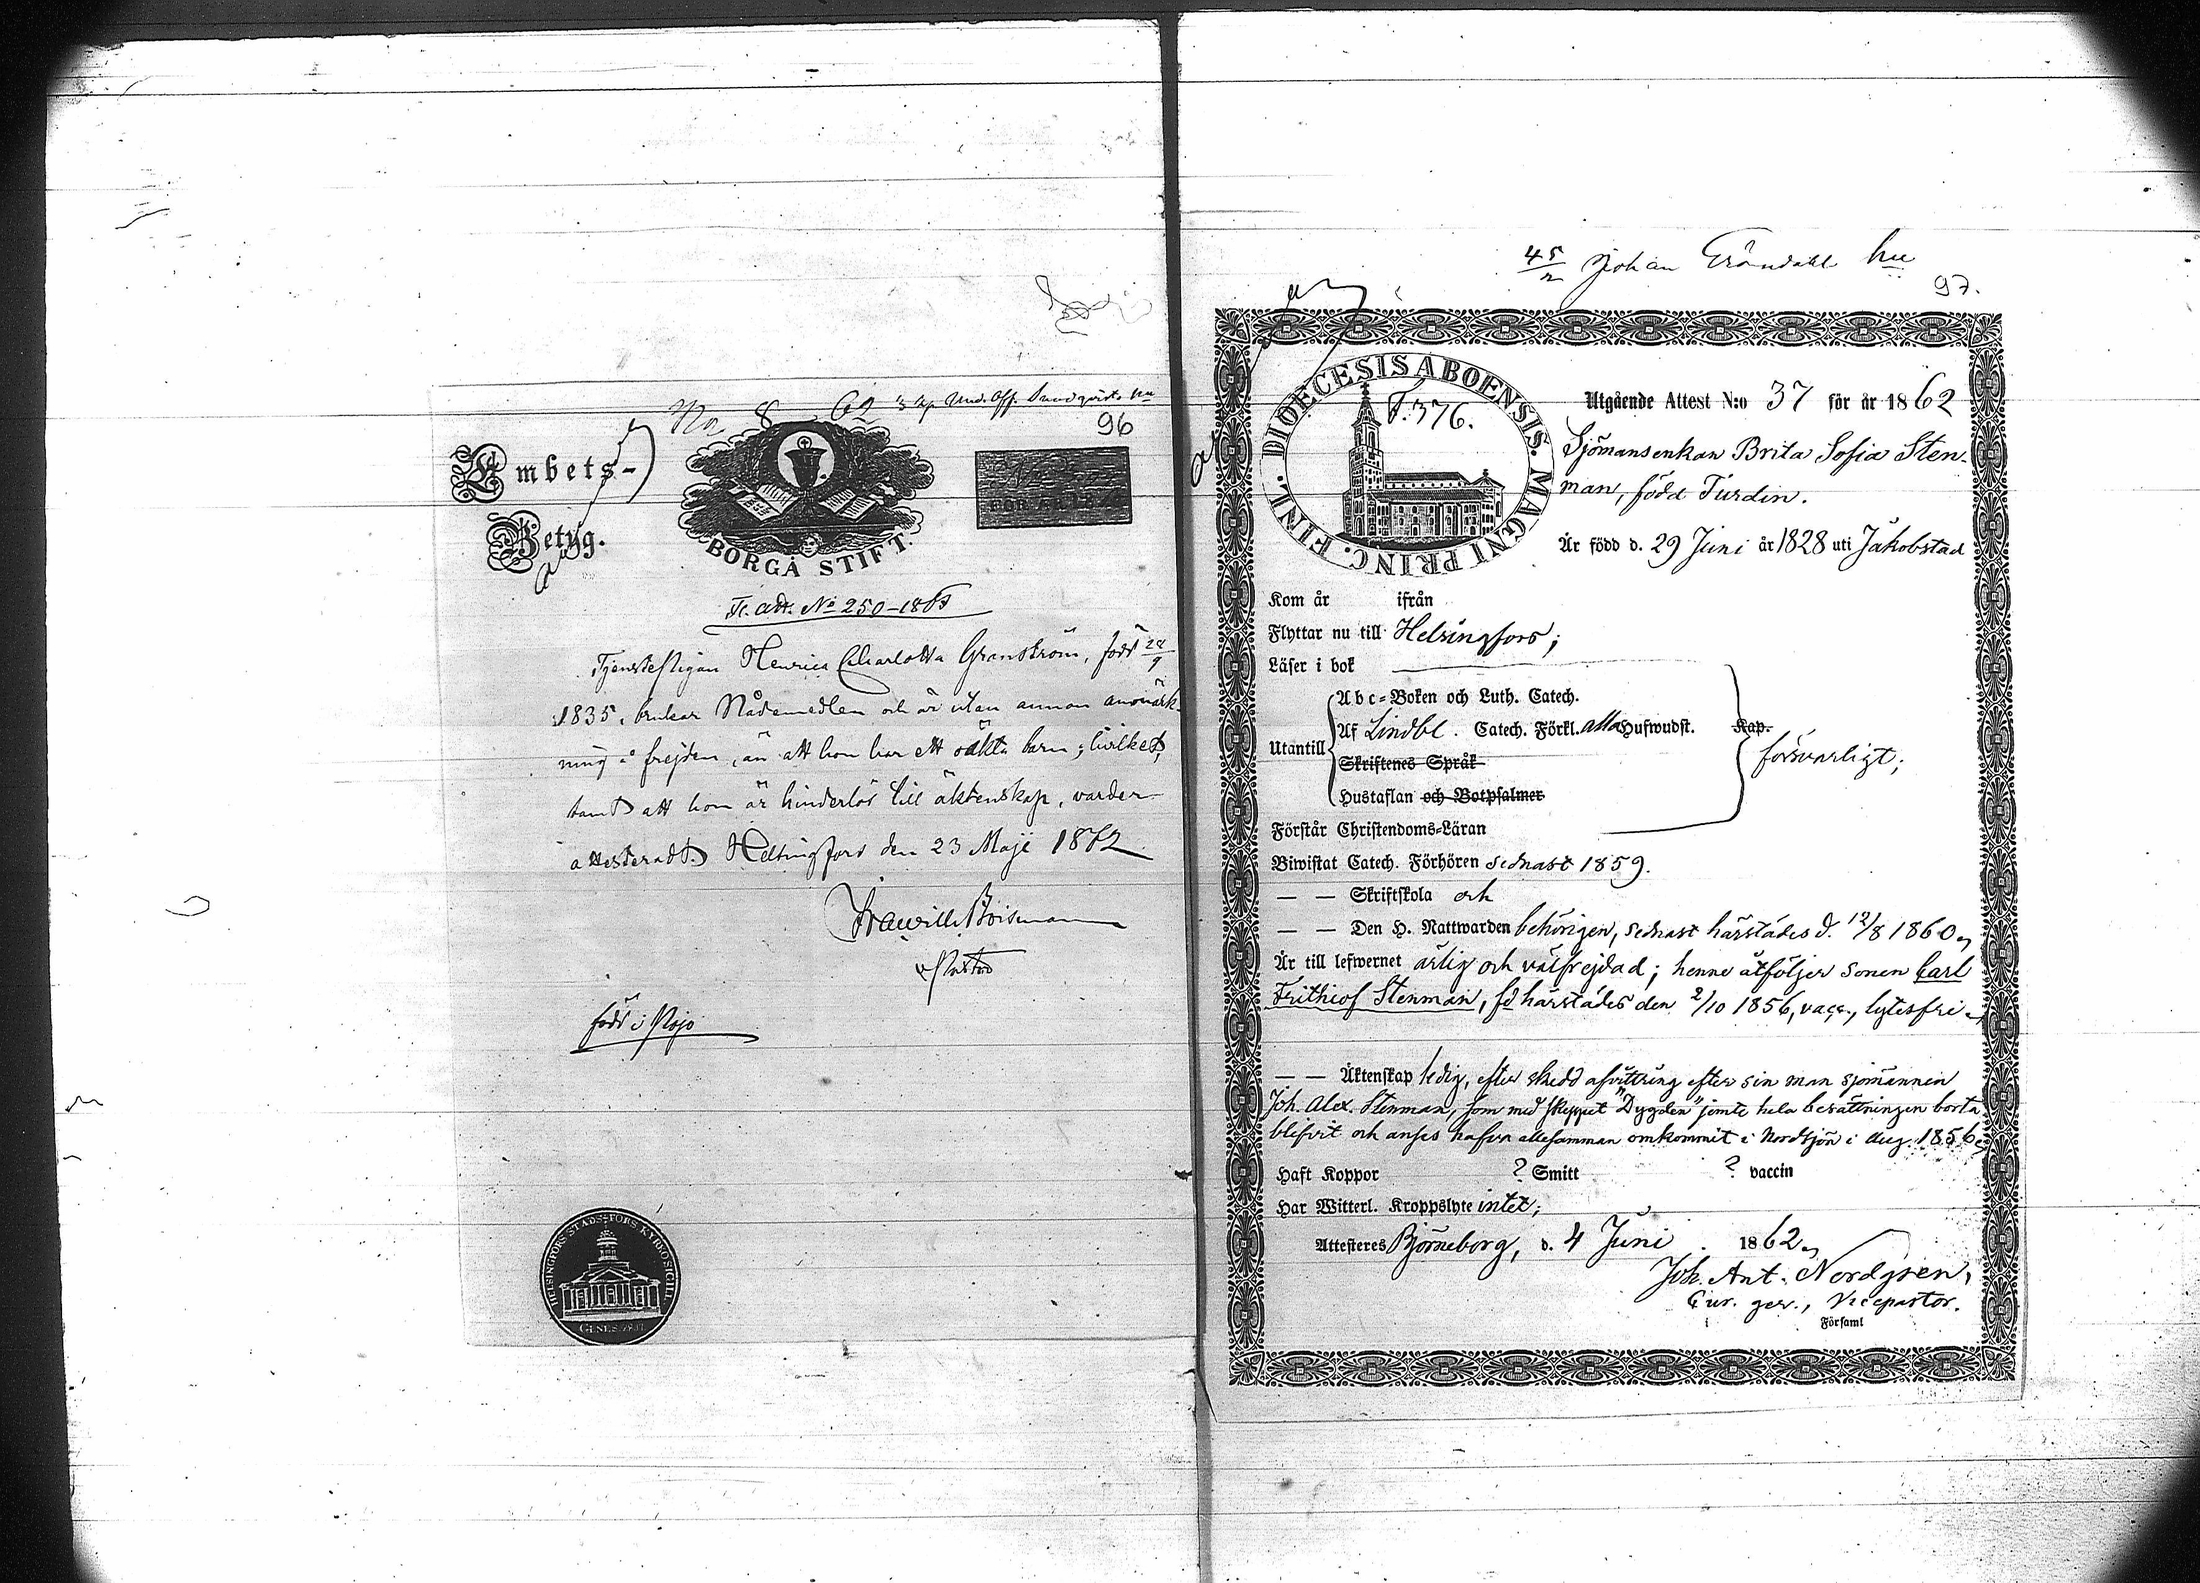 No 8 62
96
Embets-
Betyg.
BORGÅ STIFT.
Fl. att. No 250-1862
Tjenstepigan Henrica Charlotta Granström, född 29/9
1835, brukar Nådemedlen och är utan annan anmärk-
ning i frejden, än att hon har ett oäkta barn; hvilket,
samt att hon är hinderlös till äktenskap, varder
attesteradt. Helsingfors den 23 Maji 1862
Pastor
född i Pojo
HELSINGFORS STADS-FÖRS. KYRKOSIGILL
45/2 Johan Gröndahl hu
97.
DIOECESIS ABOENSIS. MAGNI PRINC. FINL.
F. 376.
Utgående Attest N:o 37 för år 1862
Sjömansenkan Brita Sofia Sten-
man, född Turdin.
Är född d. 29 Juni år 1828 uti Jakobstad
Kom år ifrån
Flyttar nu till Helsingfors;
Läser i bok
Abc-Boken och Luth. Catech.
Utantill Af Lindbl. Catech. Förkl. alla Hufwudst. Kap.
försvarligt;
Skriftenes Språk
Hustaflan och Botpsalmer
Förstår Christendoms-Läran
Biwistat Catech. Förhören sednast 1859.
— — Skriftskola och
— — Den H. Nattwarden behörigen, sednast härstädes d. 12/8 1860,
Är till lefwernet ärlig och välfrejdad; henne åtföljer sonen Carl
Frithiof Stenman, fd härstädes den 2/10 1856, vacc., lytesfri.
— — Äktenskap ledig, efter skedd afvittring efter sin man sjömannen
Joh. Alex. Stenman, som med skeppet "Dygden" jemte hela besättningen borta
blifvit och anses hafva allesamman omkommit i Nordsjön i Aug. 1856.
Haft Koppor ? Smitt ? vaccin
Har Witterl. Kroppslyte intet;
Attesteres Björneborg, d. 4 Juni 1862,
Joh. Ant. Nordgren,
Cur. ger., Vicepastor.
Församl